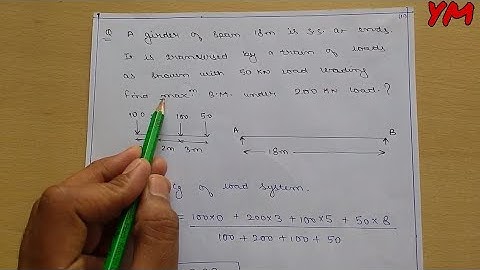 YM
Q A girder of span 18m is s.s. at ends.
It is transversed by a train of loads
as shown with 50 KN load leading
find maxm B.M. under 200 KN load.?
100 100 50
2m 3m
A B
18m
Cg of load system.
= 100x0 + 200x3 + 100x5 + 50x8
100 + 200 + 100 + 50